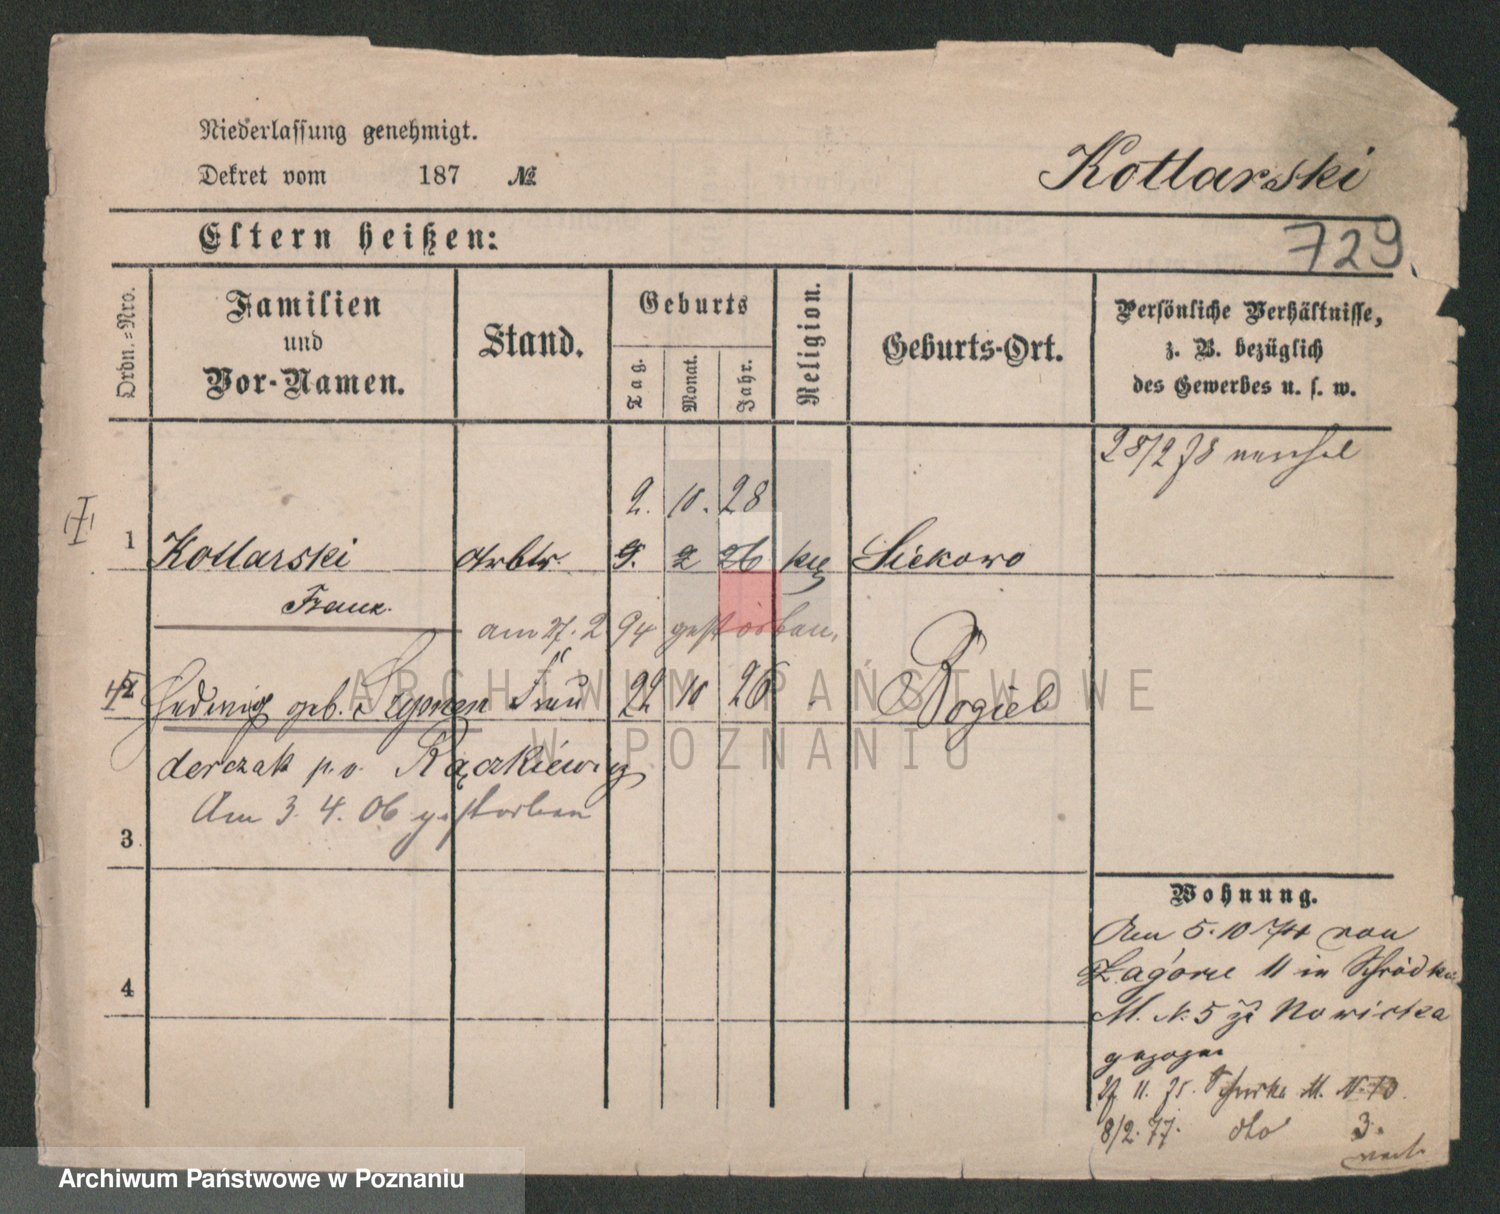 Niederlassung genehmigt.
Dekret vom 187 №
Kotlarski
Eltern heißen:
729.
Ordn.=Nro.
Familien
und
Vor-Namen.
Stand.
Geburts
Tag.
Monat.
Jahr.
Religion.
Geburts-Ort.
Persönliche Verhältnisse,
z. B. bezüglich
des Gewerbes u. s. w.
28/2 78
2. 10. 28
1 Kotlarski Arbtr. 2 26 Siekowo
Franz
am 27. 2 94 gestorben,
2 Hedwig geb. Frau 22 10 26 Bogiel
derczak p. v.
Am 3. 4. 06 gestorben
3
Wohnung.
Am 5. 10 von
Zagórze 11 in Schrodka
M. N. 5 zu
gezogen
4
11. 75. M. N. 13.
8/2. 77. dto 3.
ARCHIWUM PAŃSTWOWE
W POZNANIU
Archiwum Państwowe w Poznaniu